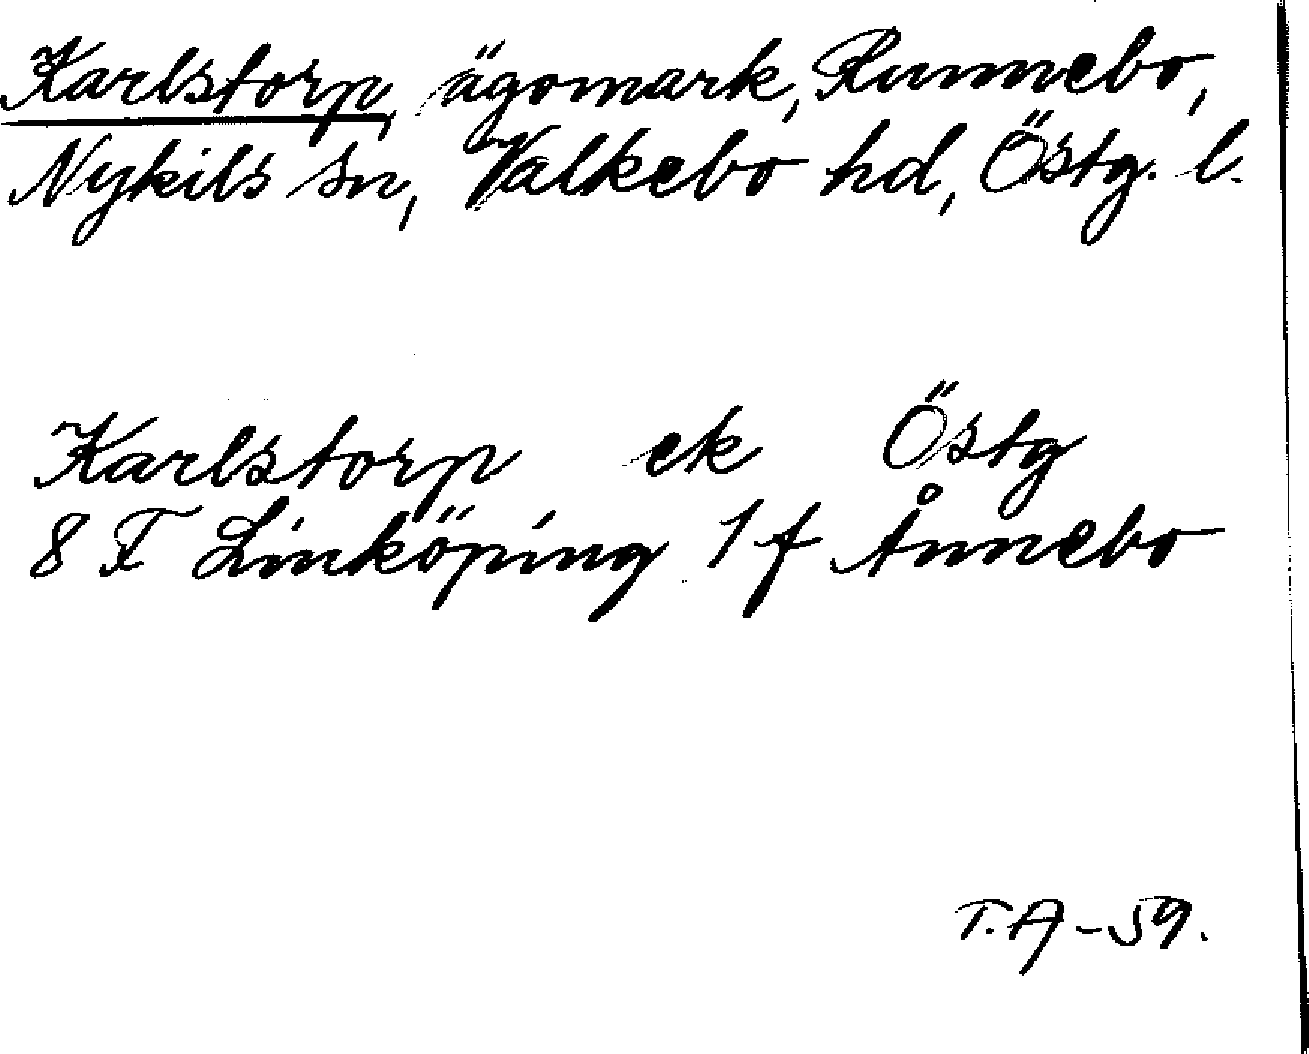 Karlstorp, ägomark, Runnebo,
Nykils sn, Valkebo hd, Östg. l.
Karlstorp ek Östg
8 F Linköping 1 f Ånnebo
T.A-59.